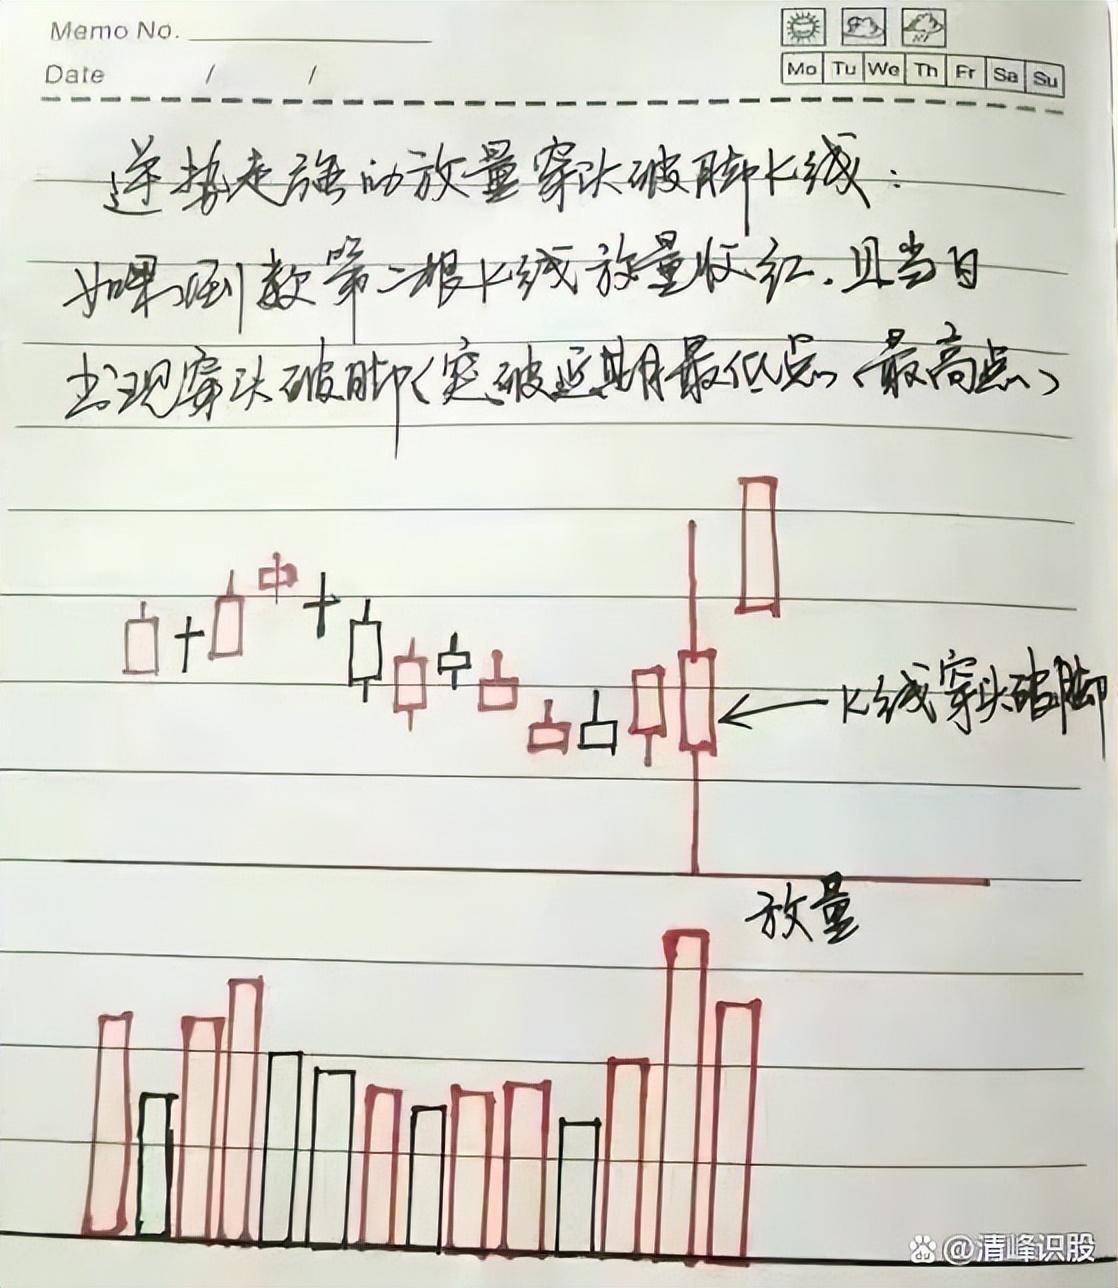 Memo No.
Date / /
Mo Tu We Th Fr Sa Su
逆势走强的放量穿头破脚K线：
如果倒数第二根K线放量收红，且当日
出现穿头破脚（突破近期最低点、最高点）
K线穿头破脚
放量
du @清峰识股